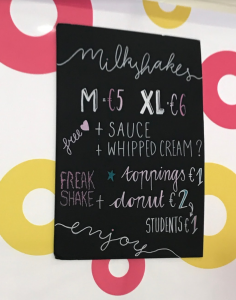 milkshakes
M • €5 XL • €6
free + SAUCE
+ WHIPPED CREAM?
FREAK SHAKE + toppings €1
+ donut €2
STUDENTS €1
enjoy